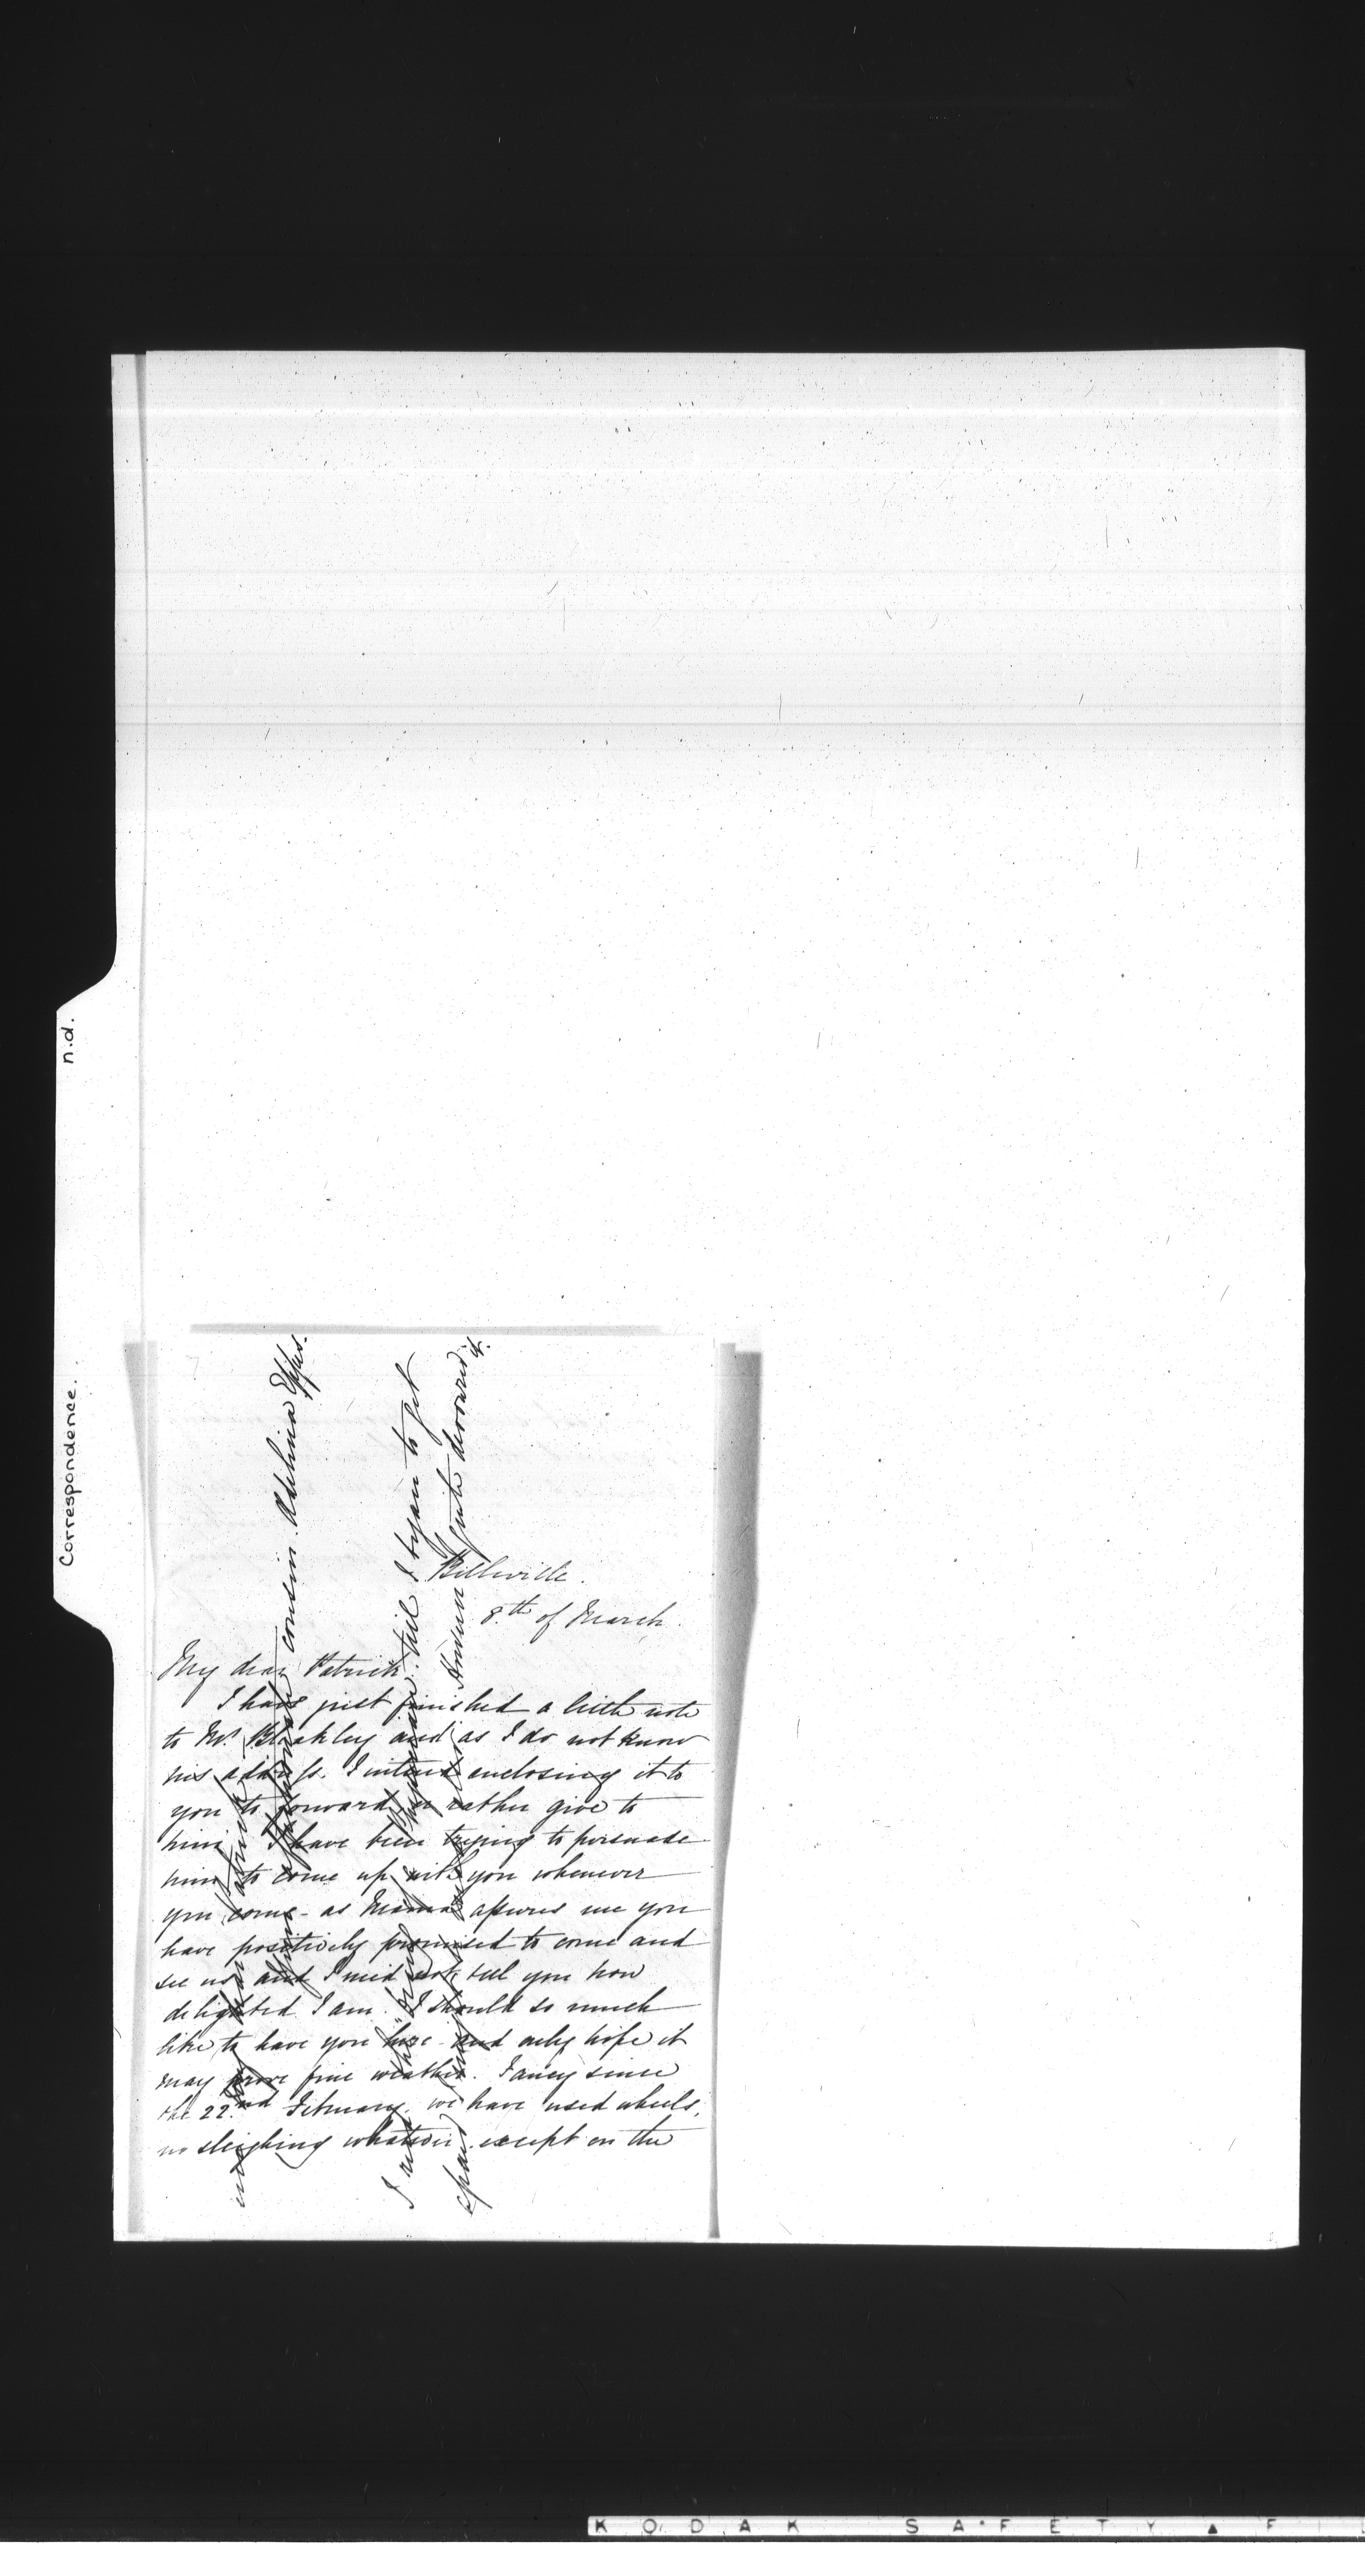 Correspondence. n.d.
Belleville.
8th of March.
My dear Patrick.
I have just finished a little note
to Mr. Blakley and as I do not know
his address. I intend enclosing it to
you to forward, or rather give to
him. I have been trying to persuade
him to come up with you whenever
you come - as Mama assures me you
have positively promised to come and
see us and I need not tell you how
delighted I am. I should so much
like to have you here - and only hope it
may prove fine weather. Fancy since
the 22nd February, we have used wheels,
no sleighing whatever except on the
cousin Adelina Eppes.
till I began to get
quite devoured it.
KODAK SAFETY F